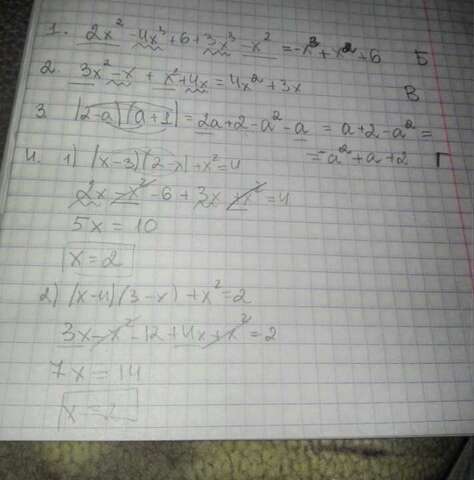 1. 2x² - 4x³ + 6 + 3x³ - x² = -x³ + x² + 6 Б
2. 3x² - x + x² + 4x = 4x² + 3x В
3. (2-a)(a+1) = 2a + 2 - a² - a = a + 2 - a² =
= -a² + a + 2 Г
4. 1) (x-3)(2-x) + x² = 4
2x - x² - 6 + 3x + x² = 4
5x = 10
x = 2
2) (x-4)(3-x) + x² = 2
3x - x² - 12 + 4x + x² = 2
7x = 14
x = 2